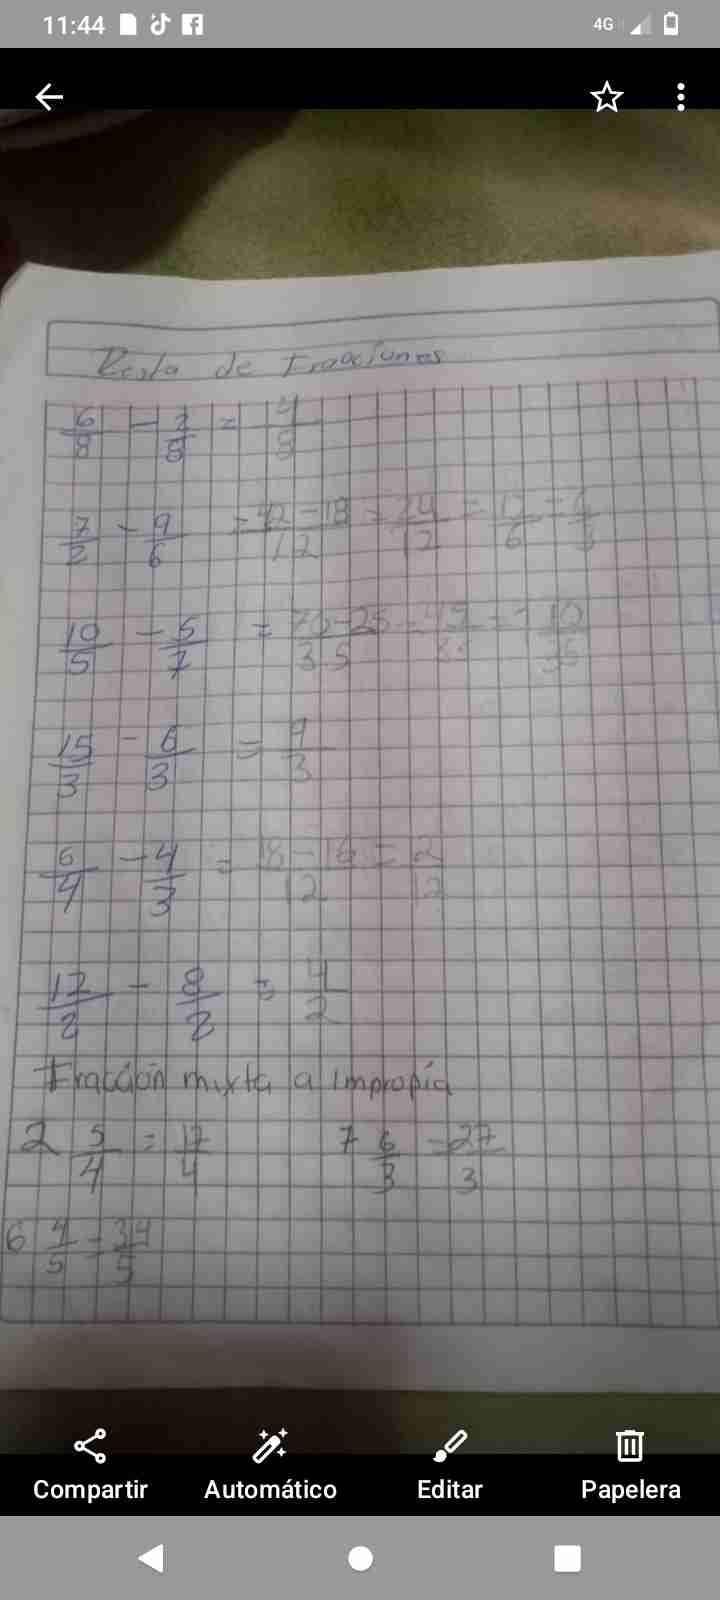 11:44 4G
Resta de Fracciones
6/8 - 2/8 = 4/8
7/2 - 9/6 = 42-18/12 = 24/12 = 12/6 = 6/3
10/5 - 5/7 = 70-25/35 = 45/35 = 1 10/35
15/3 - 6/3 = 9/3
6/4 - 4/3 = 18-16/12 = 2/12
12/2 - 8/2 = 4/2
Fracción mixta a impropia
2 5/4 = 17/4 7 6/3 = 27/3
6 4/5 = 34/5
Compartir Automático Editar Papelera